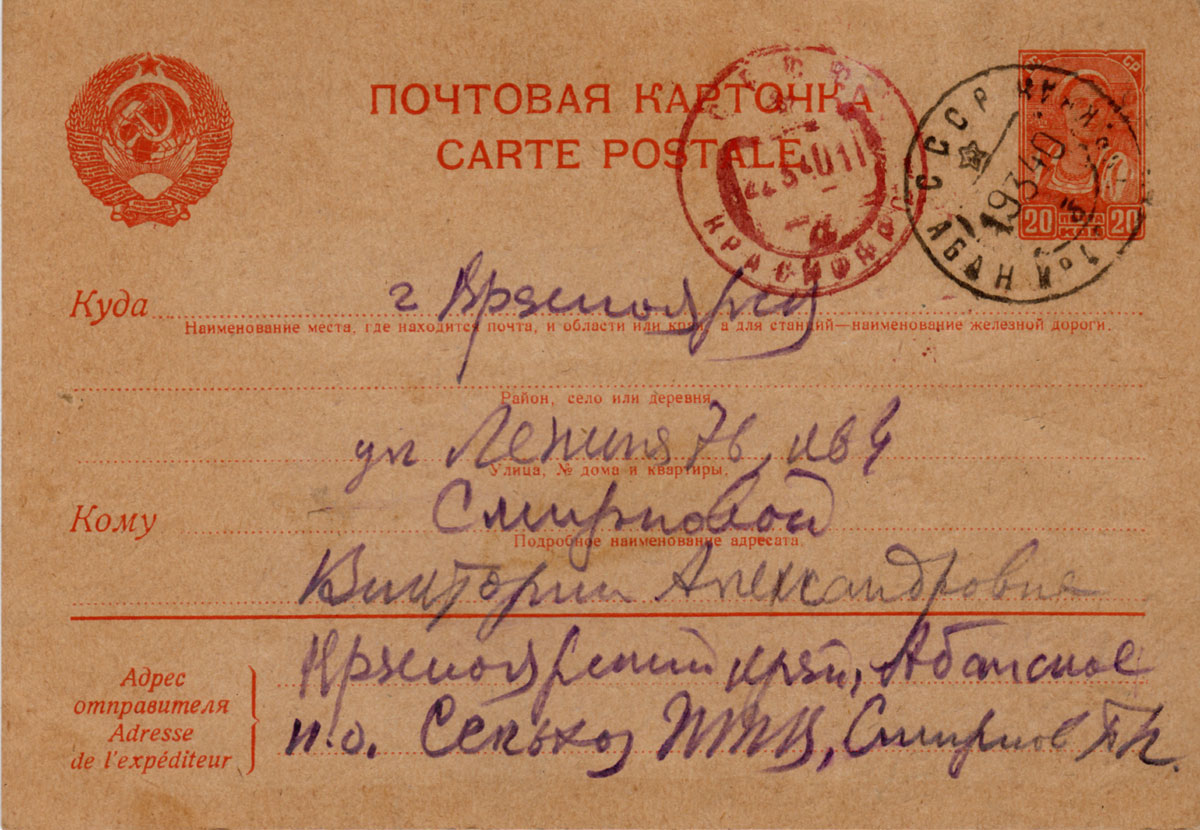 ПОЧТОВАЯ КАРТОЧКА
CARTE POSTALE
СССР
АБАН
19 3 40
КРАСНОЯРС
20 20
Куда г Красноярск
Наименование места, где находится почта, и области или края, а для станций—наименование железной дороги.
Район, село или деревня
ул Ленина 76, кв 4
Улица, № дома и квартиры.
Кому Смирновой
Подробное наименование адресата.
Виктории Александровне
Адрес отправителя
Adresse de l'expéditeur
Красноярский край, Абанское
п.о. Сельхоз Смирнов